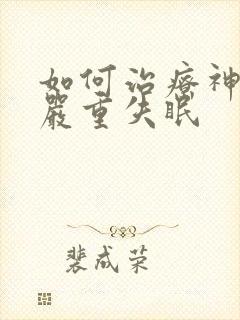 如何治疗神
严重失眠
裴成荣